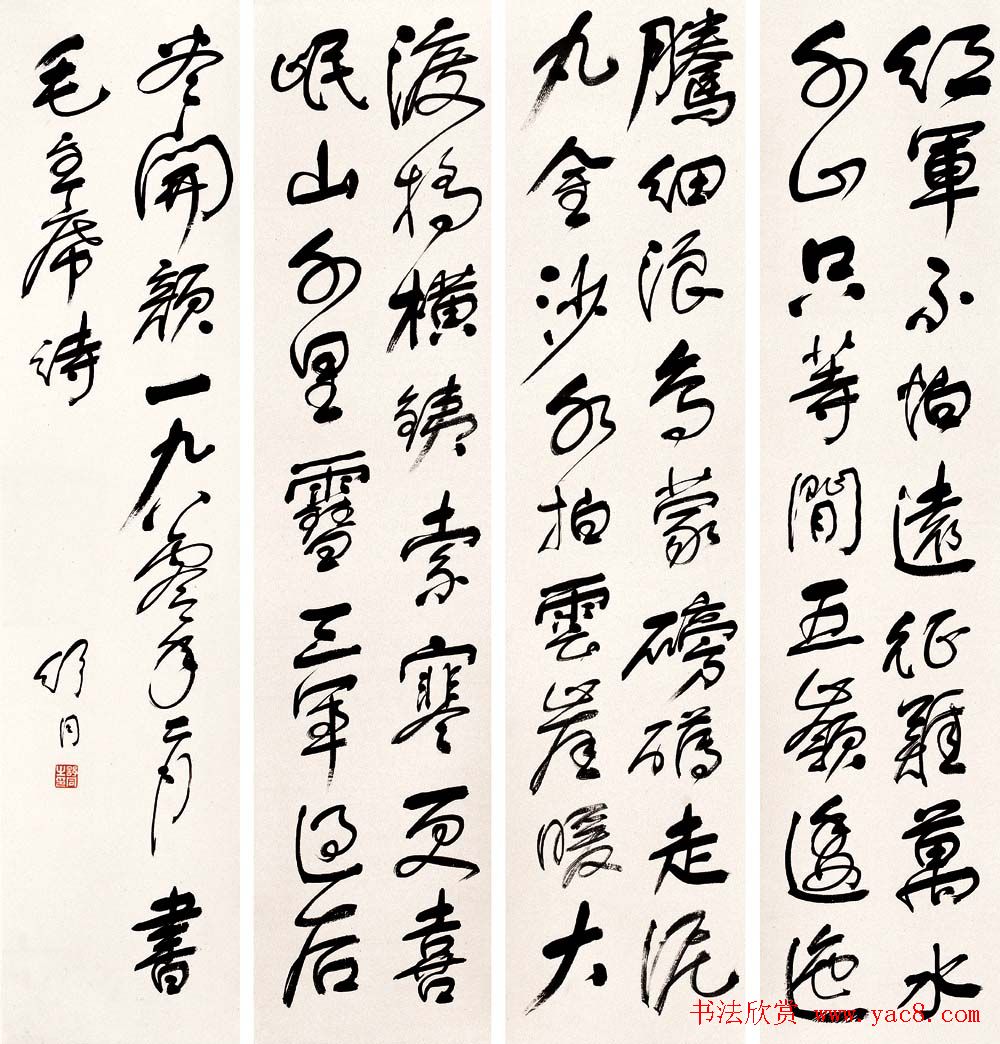 紅軍不怕遠征難萬水
千山只等閒五嶺逶迤
騰細浪烏蒙磅礴走泥
丸金沙水拍雲崖暖大
渡橋橫銕索寒更喜
岷山千里雪三軍過后
尽開顏一九八零年二月書
毛主席詩
舒同
书法欣赏 www.yac8.com